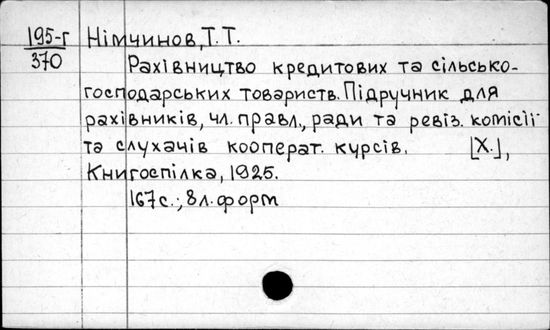 195-г
370
Німчинов, Т.Т.
Рахівництво кредитових та сільсько-
господарських товариств. Підручник для
рахівників, чл. правл., ради та ревіз. комісії
та слухачів кооперат. курсів. [Х.],
Книгоспілка, 1925.
167с.; 8л. форм